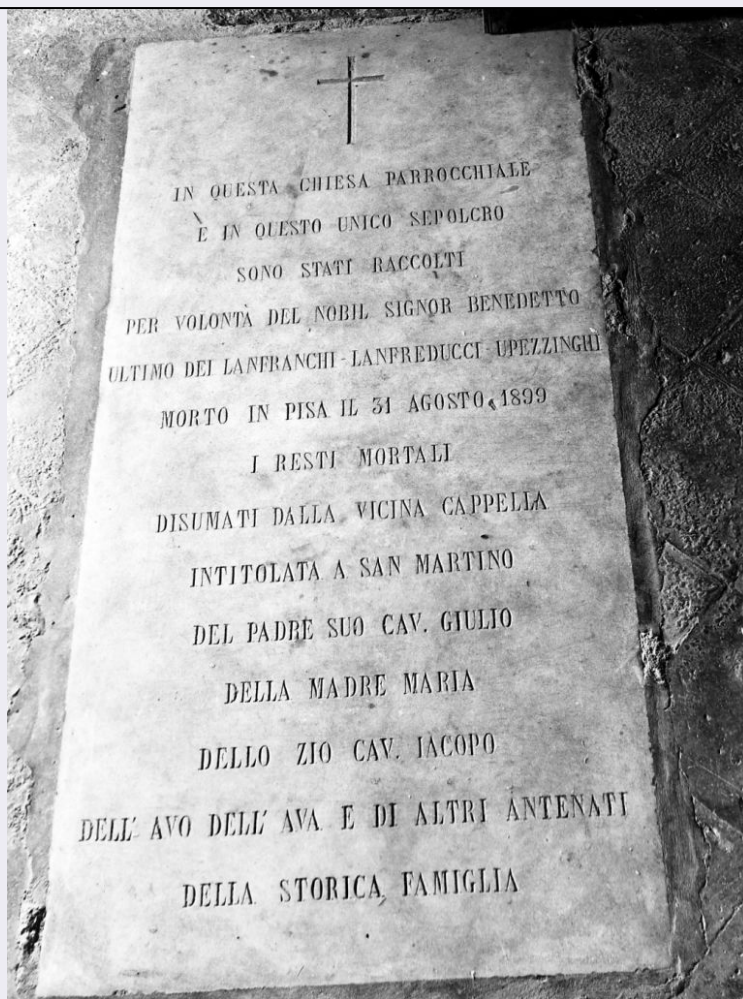 IN QUESTA CHIESA PARROCCHIALE
È IN QUESTO UNICO SEPOLCRO
SONO STATI RACCOLTI
PER VOLONTÀ DEL NOBIL SIGNOR BENEDETTO
ULTIMO DEI LANFRANCHI-LANFREDUCCI-UPEZZINGHI
MORTO IN PISA IL 31 AGOSTO 1899
I RESTI MORTALI
DISUMATI DALLA VICINA CAPPELLA
INTITOLATA A SAN MARTINO
DEL PADRE SUO CAV. GIULIO
DELLA MADRE MARIA
DELLO ZIO CAV. IACOPO
DELL' AVO DELL' AVA E DI ALTRI ANTENATI
DELLA STORICA FAMIGLIA